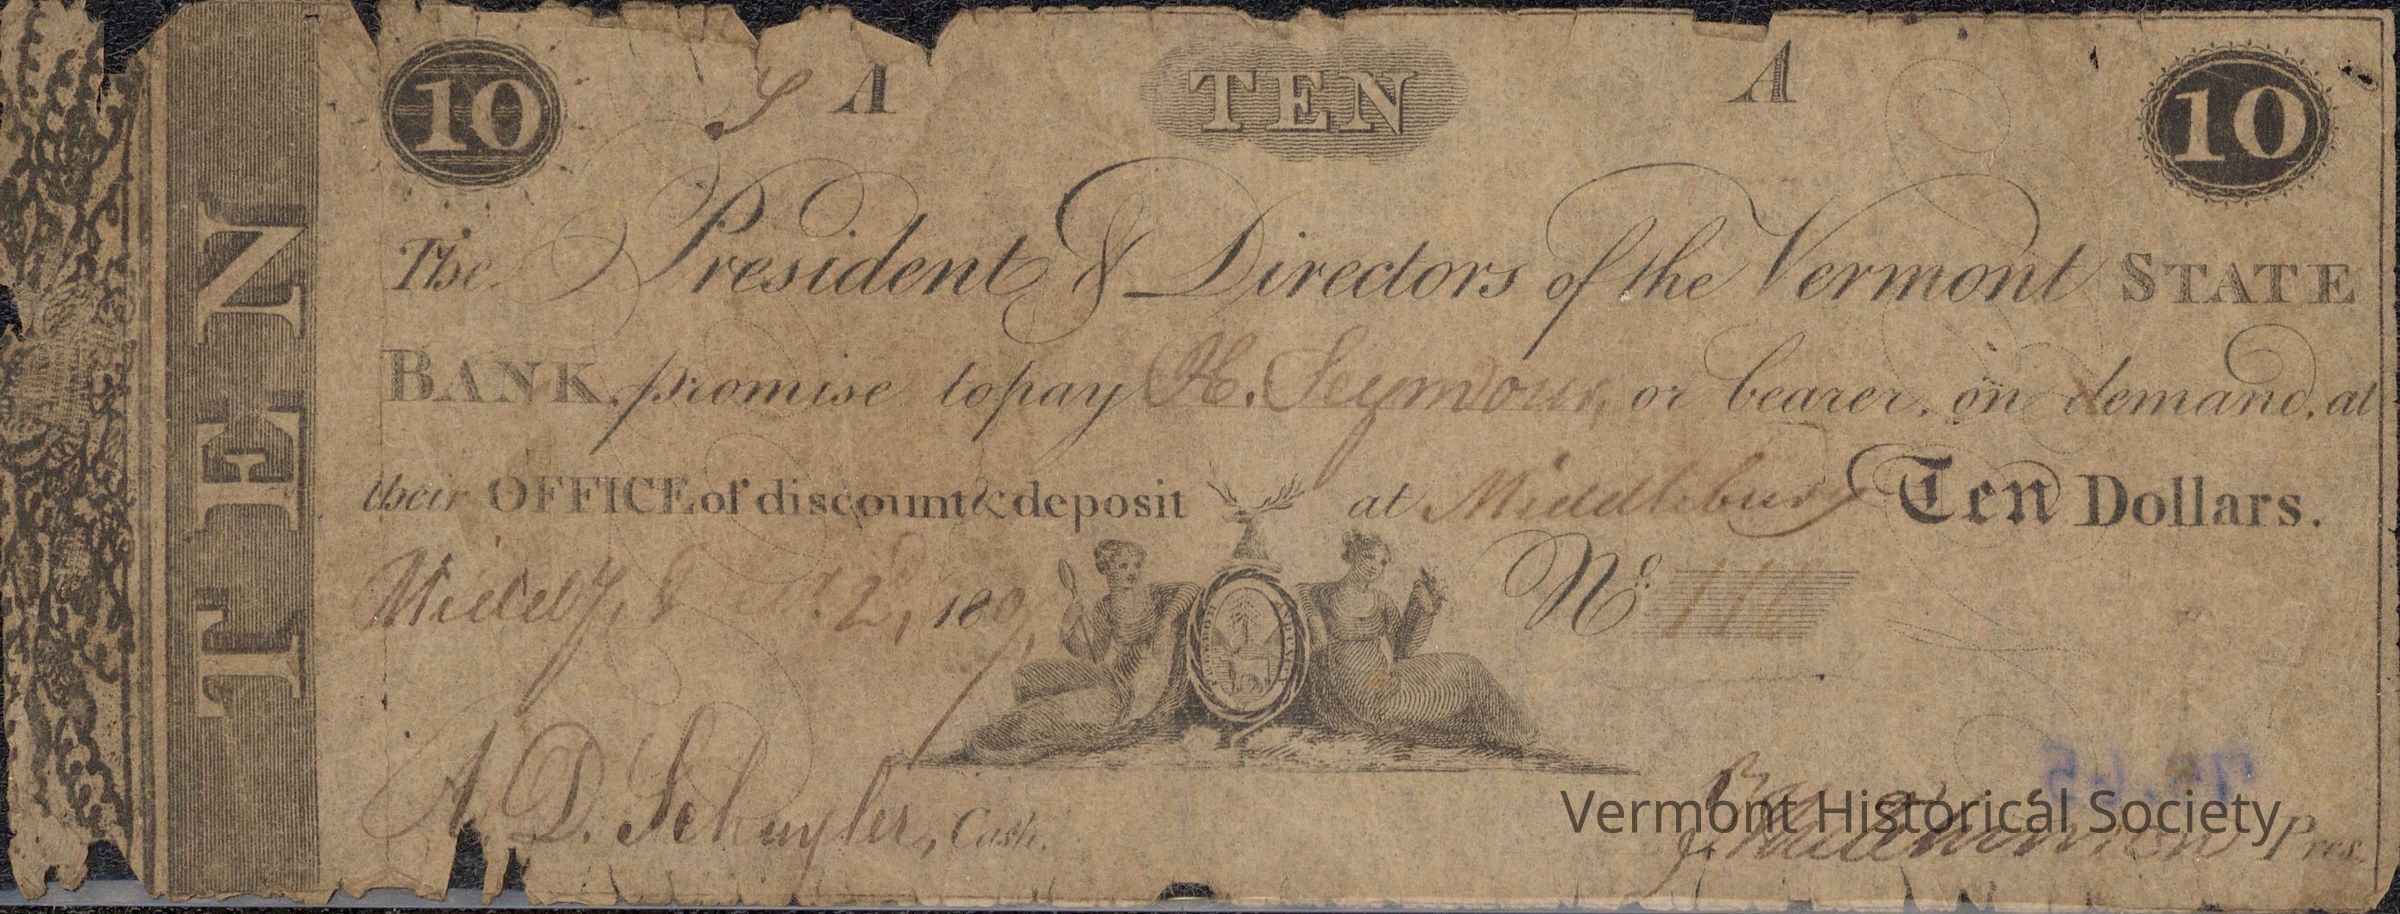 10 A TEN A 10
TEN
The President & Directors of the Vermont STATE
BANK, promise to pay H. Seymour, or bearer, on demand, at
their OFFICE of discount & deposit at Middlebury Ten Dollars.
Middy, 2d, 180 No. 111
A. D. Schuyler, Cash. Pres.
Vermont Historical Society